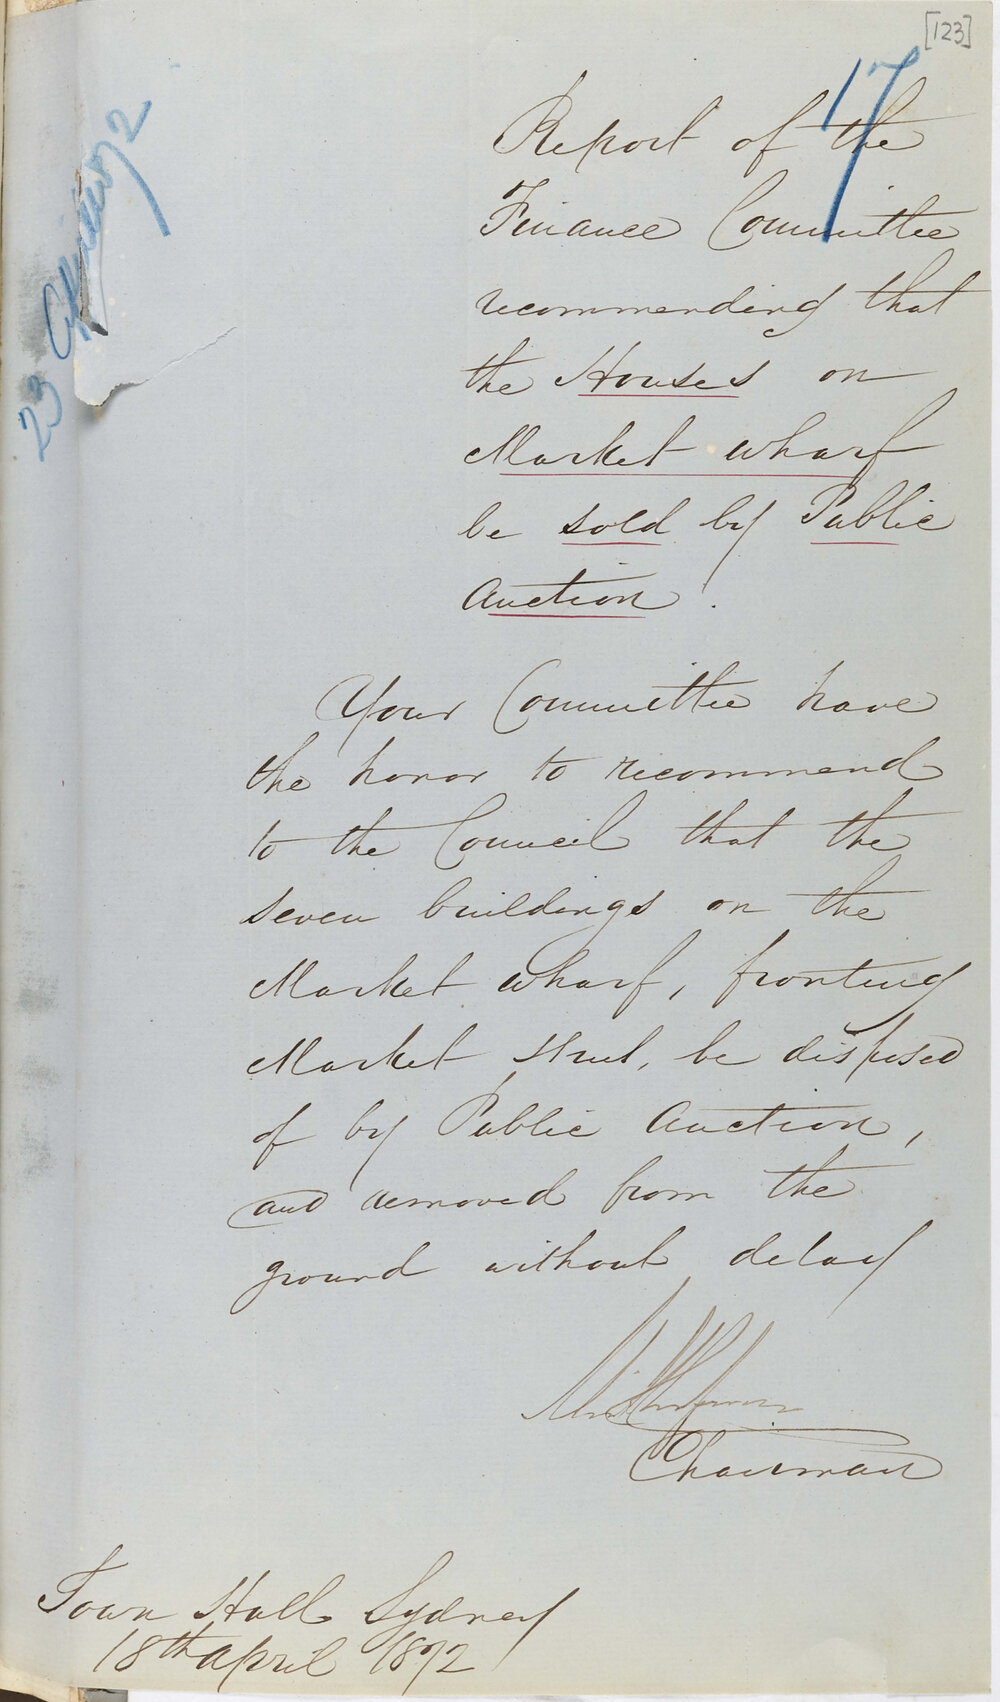 [123]
17
23 April 72
Report of the
Finance Committee
recommending that
the Houses on
Market wharf
be sold by Public
Auction.
Your Committee have
the honor to recommend
to the Council that the
seven buildings on the
Market wharf, fronting
Market Street, be disposed
of by Public Auction,
and removed from the
ground without delay
Chairman
Town Hall Sydney
18th April 1872